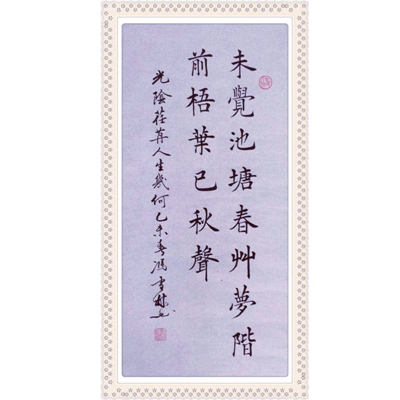 未覺池塘春艸夢階
前梧葉已秋聲
光陰荏苒人生幾何乙未春馮雪林書